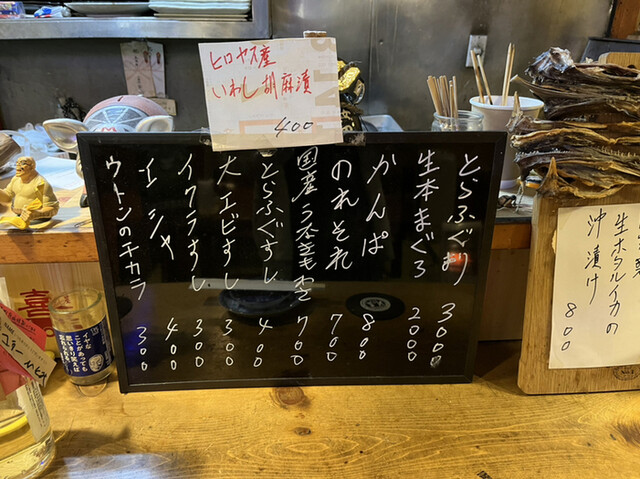 ヒロヤス産
いわし胡麻漬
400
とらふぐ刺 3000
生本まぐろ 2000
かんぱ 800
のれそれ 700
国産うなぎきもわさ 700
とらふぐすし 400
大エビすし 300
イクラすし 300
エシャ 400
ウトンのチカラ 300
生ホタルイカの
沖漬け
800
イヤな
ことがあっても
思いきり笑えば
喜